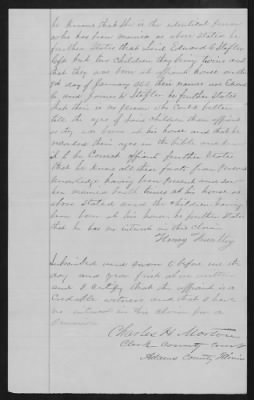 he knows that she is the identical person
who has been married as above stated he
further states that said Edward Stofler
left but two Children they being twins and
that they was born at affiant house on the
day of January their names are Edward
and Stofler he further states
that their is no person who could better
tell the ages of said children than affiant
as they was born at his house and that he
recorded their ages in the bible and knows
it to be Correct affiant further states
that he knows all these facts from Personal
knowledge having been present and
been married at his house as
above stated and the children having
been born at his house he further states
that he has no interest in this Claim
Henry
Subscribed and sworn to before me the
day and year first above written
and I certify that the affiant is a
Credable witness and that I have
no interest in this claim for a
Pension
Charles H Morton
Clerk County Court
Adams County Illinois